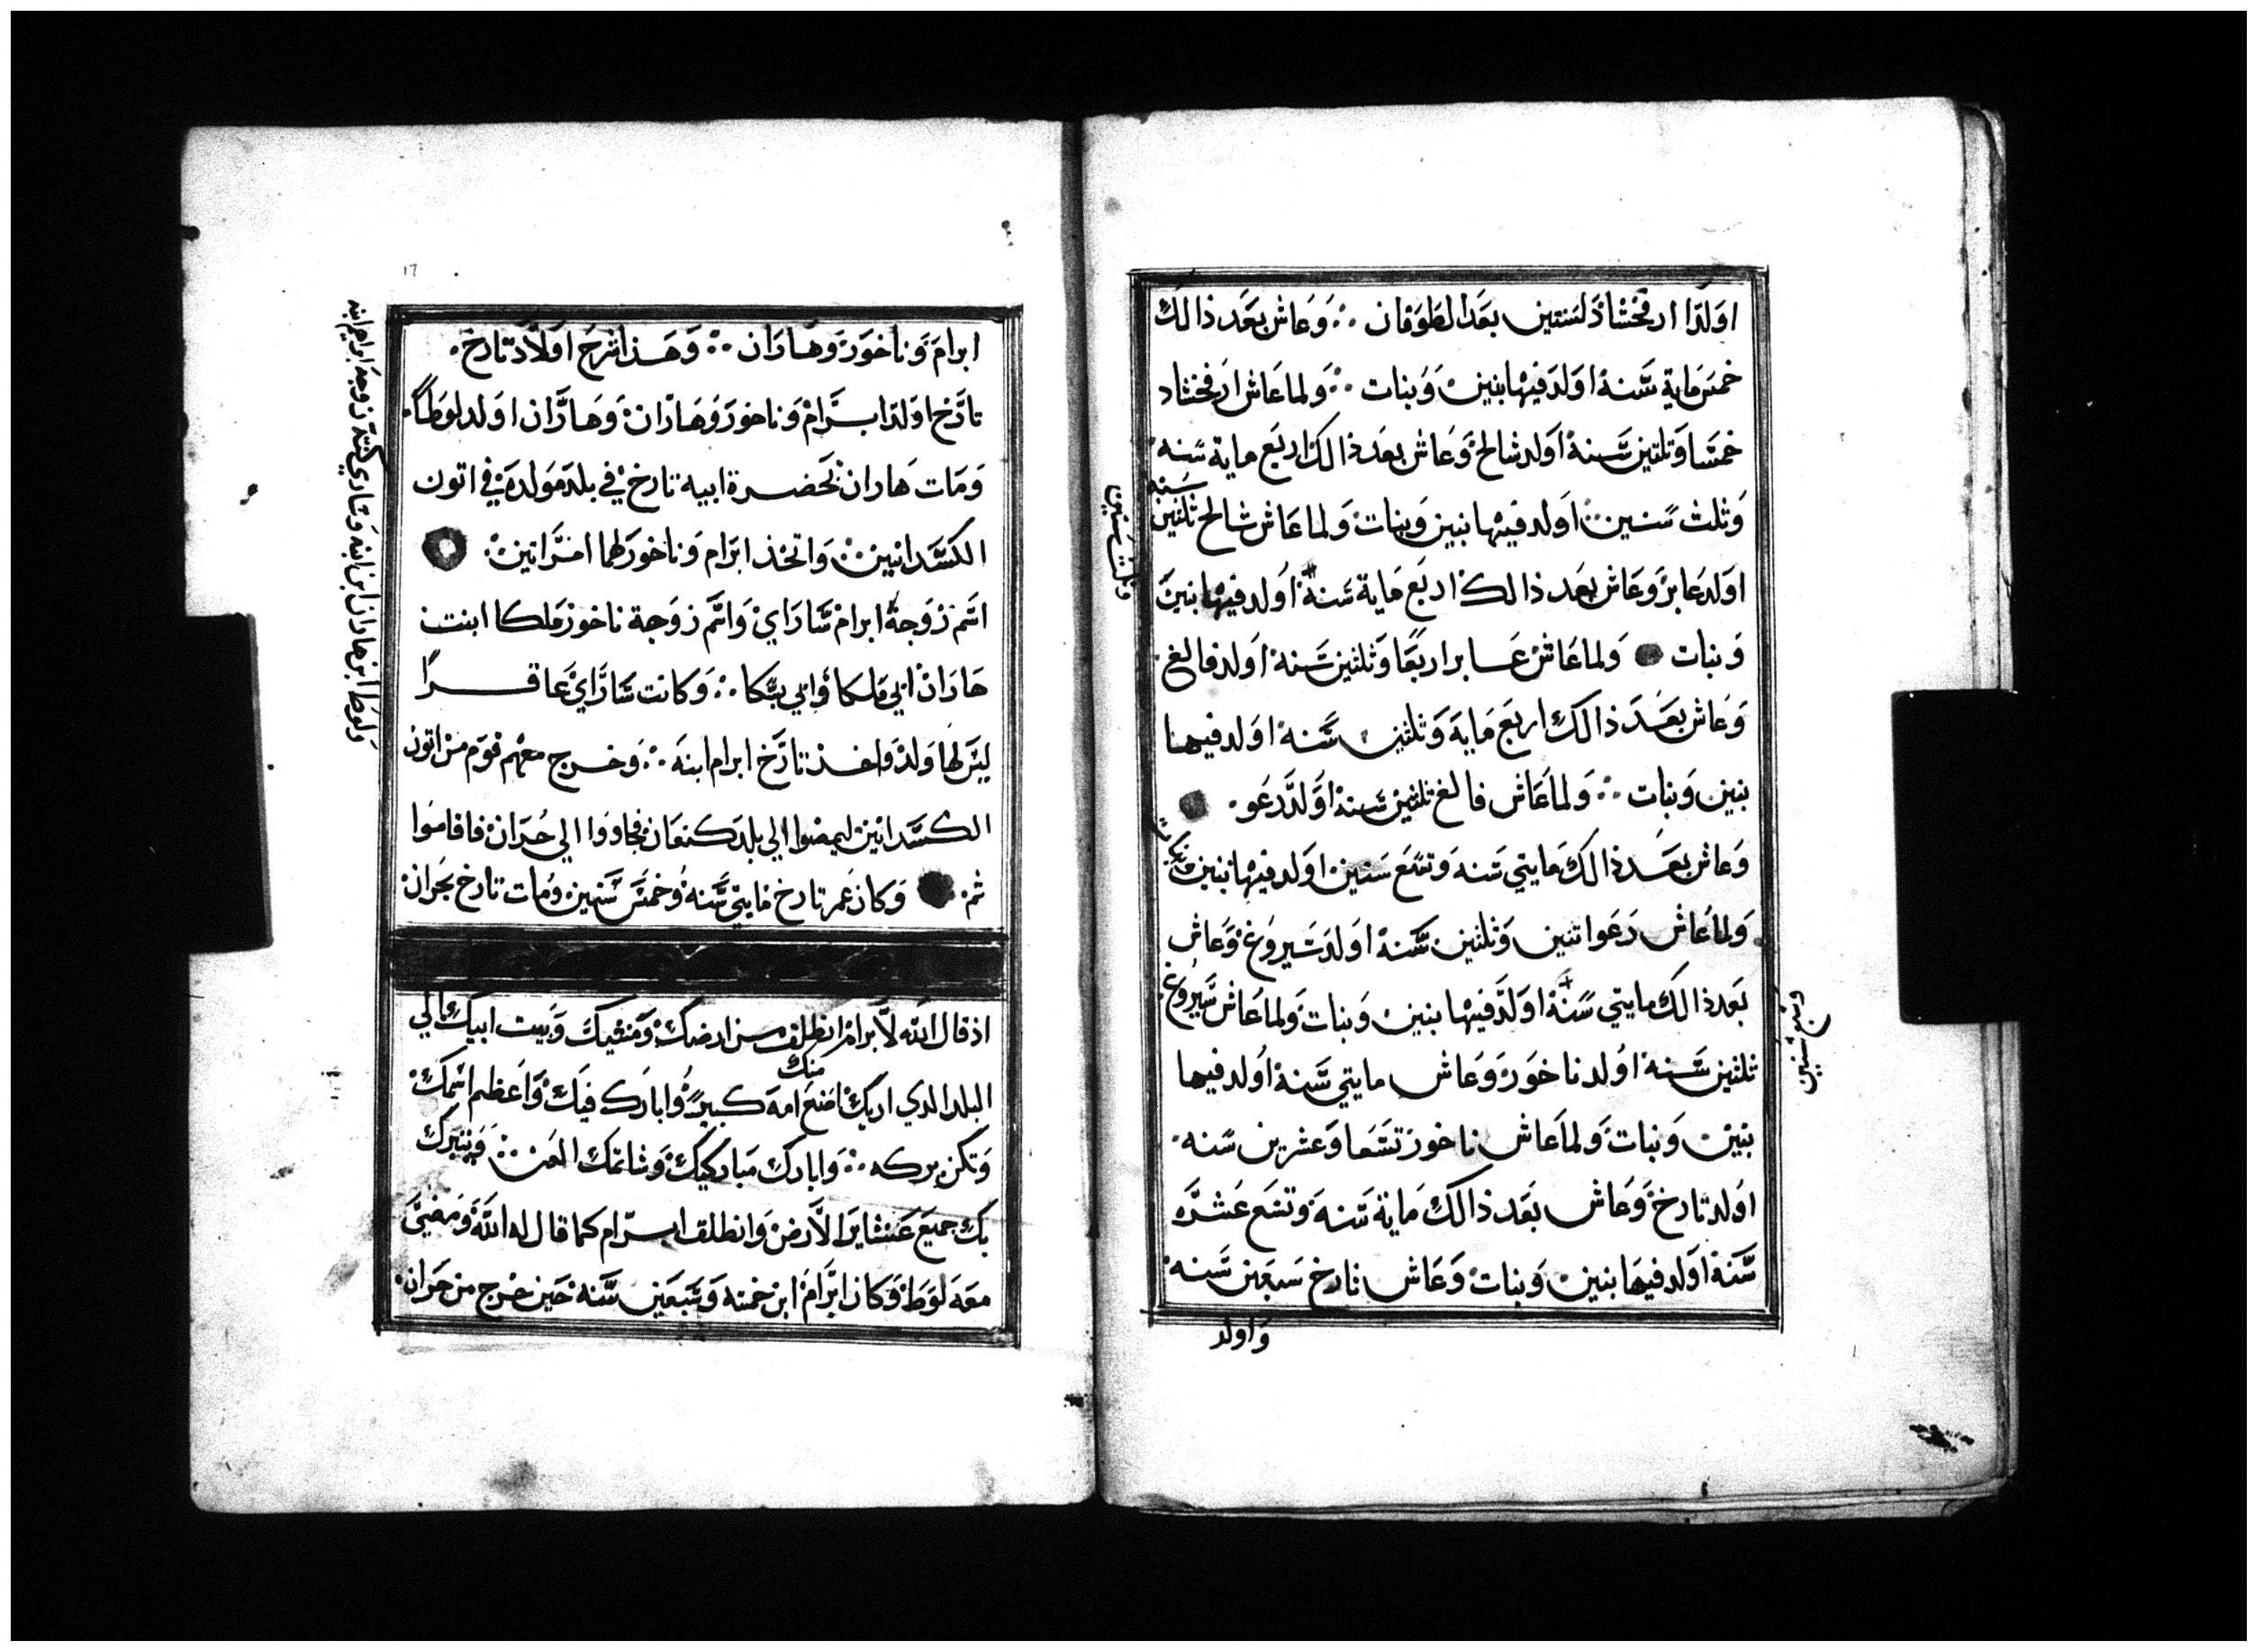 اولد ارفخشاذ لسنتين بعد الطوفان وعاش بعد ذالك
خمس ماية سنة اولد فيها بنين وبنات ولما عاش ارفخشاد
خمسا وتلتين سنة اولد شالح وعاش بعد ذالك اربع ماية سنه
وثلث سنين اولد فيها بنين وبنات ولما عاش شالح ثلثين سنه
اولد عابر وعاش بعد ذالك اربع ماية سنة اولد فيها بنين
وثلث سنين
وبنات ولما عاش عابر اربعا وثلثين سنة اولد فالغ
وعاش بعد ذالك اربع ماية وثلثين سنة اولد فيها
بنين وبنات ولما عاش فالغ ثلثين سنة اولد رعو
وعاش بعد ذالك مايتي سنه وتسع سنين اولد فيها بنين وبنات
ولما عاش رعو اتنين وثلثين سنة اولد سيروغ وعاش
بعد ذالك مايتي سنة اولد فيها بنين وبنات ولما عاش سيروغ
ثلثين سنة اولد ناخور وعاش مايتي سنة اولد فيها
بنين وبنات ولما عاش ناخور تسعا وعشرين سنه
اولد تارخ وعاش بعد ذالك ماية سنه وتسع عشره
سنة اولد فيها بنين وبنات وعاش تارخ سبعين سنه
واولد
١٦
ابرام وناخور وهاران وهذا شرح اولاد تارخ
تارخ اولد ابرام وناخور وهاران وهاران اولد لوطا
ومات هاران بحضرة ابيه تارخ في بلد مولده في اتون
الكسدانيين واتخذ ابرام وناخور لهما امراتين
اسم زوجة ابرام ساراي واسم زوجة ناخور ملكا ابنت
هاران ابي ملكا وابي يسكا وكانت ساراي عاقرا
ليس لها ولد واخذ تارخ ابرام ابنه وخرج معهم قوم من اتون
ولوط ابن هاران ابن ابنه وساري كنته زوجة ابرام ابنه
الكسدانين ليمضوا الي بلد كنعان فجاووا الي حران فاقاموا
ثم وكان عمر تارخ مايتي سنه وخمس سنين ومات تارخ بحران
اذ قال الله لابرام انطلق من ارضك ومنشيك وبيت ابيك الي
البلد الدي اريك اصنع منك امة كبيرة وابارك فيك واعظم اسمك
وتكن بركه وابارك مباركيك وشاتمك العن ويتبرك
بك جميع عشاير الارض وانطلق ابرام كما قال له الله ومضي
معه لوط وكان ابرام ابن خمسه وسبعين سنه حين خرج من حران